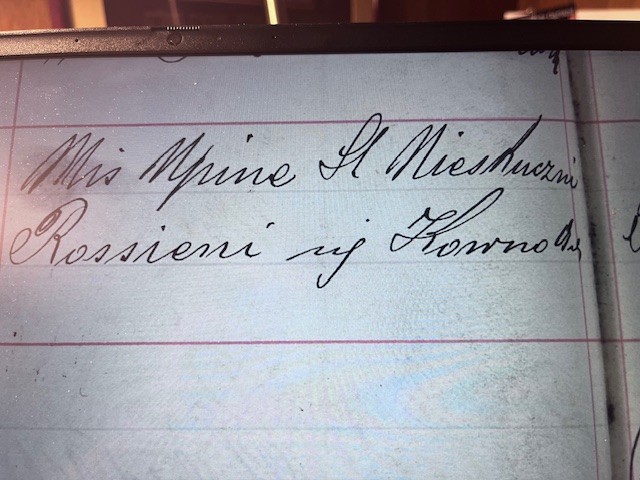 Mis Upine St Nieskuczni
Rossieni uj Kowno